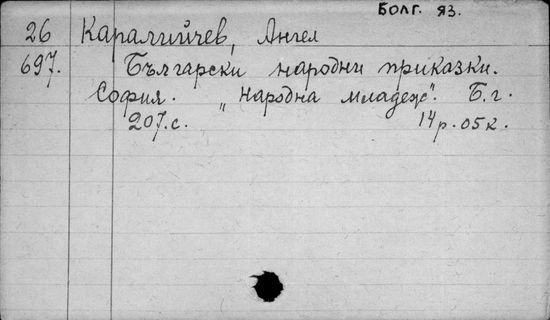 Болг. яз.
26 Каралийчев, Ангел
697. Български народни приказки.
София. „Народна младеж". Б.г.
207.с. 14р.05к.